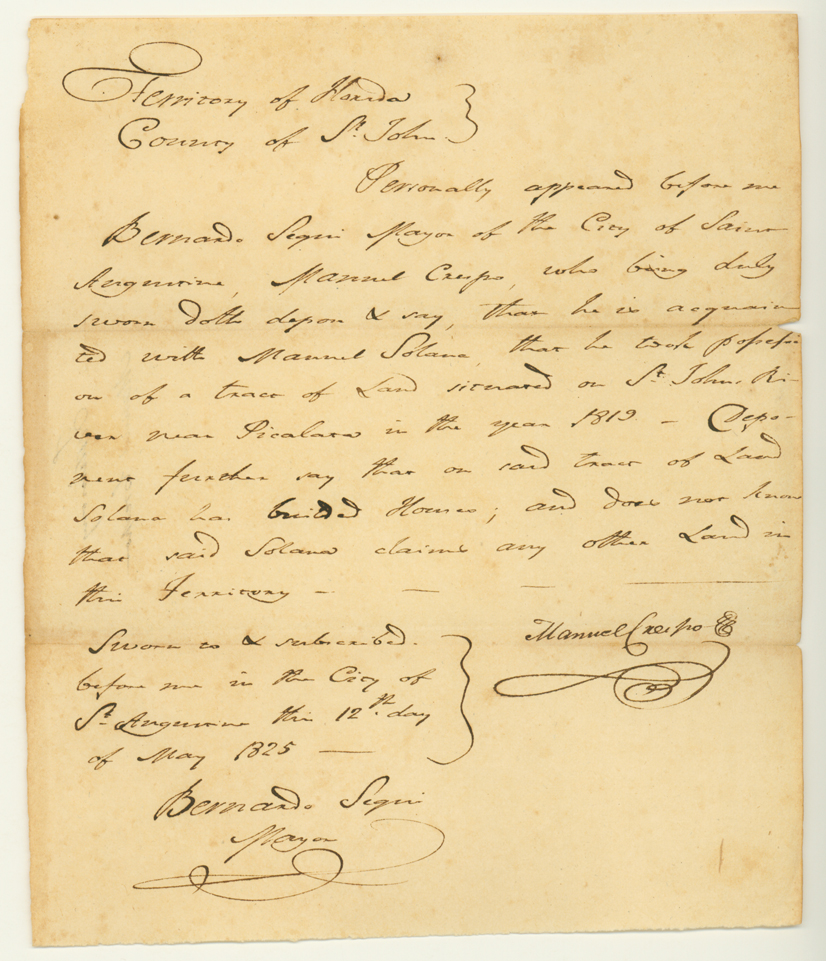 Territory of Florida
County of St. John
Personally appeared before me
Bernardo Segui Mayor of the City of Saint
Augustine, Manuel Crespo, who being duly
sworn doth depon & say, that he is acquain
ted with Manuel Solana, that he took possessi
on of a tract of Land situated on St. Johns Ri-
ver near Picalata in the year 1819 - Depo-
nent further say that on said tract of Land
Solana has builded Houses; and does not know
that said Solana claims any other Land in
this Territory - — — —
Manuel Crespo
Sworn to & subscribed
before me in the City of
St. Augustine this 12th. day
of May 1825 —
Bernardo Segui
Mayor